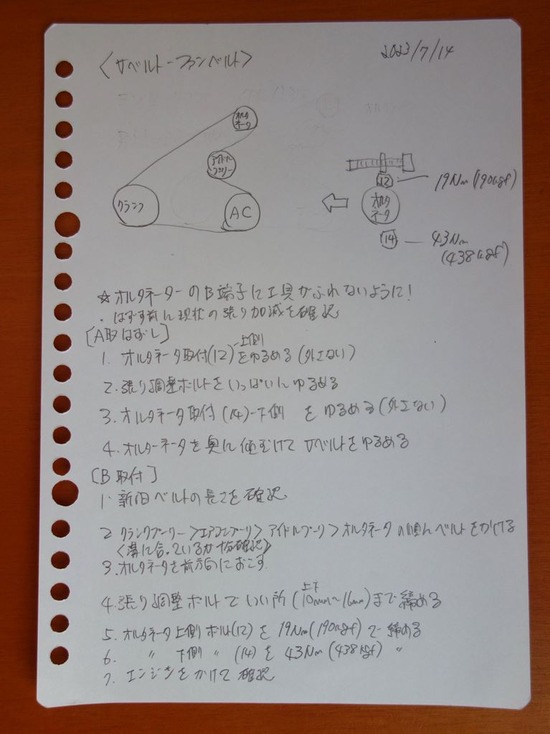 〈Vベルト-ファンベルト〉
2023/7/14
オルタネータ
アイドルプーリー
クランク
AC
12
19Nm(190kgf)
オルタネータ
14
43Nm
(438kgf)
☆オルタネーターのB端子に工具がふれないように!
・はずす前に現在の張り加減を確認
[A取はずし]
1. オルタネータ取付(12)上側をゆるめる(外さない)
2. 張り調整ボルトをいっぱいにゆるめる
3. オルタネータ取付(14)-下側 をゆるめる(外さない)
4. オルターネータを奥に傾むけてVベルトをゆるめる
[B取付]
1. 新旧ベルトの長さを確認
2. クランクプーリー>エアコンプーリ>アイドルプーリ>オルタネータの順んベルトをかける
〈溝に合っているか指確認〉
3. オルタネータを前方向におこす
4. 張り調整ボルトでいい所(上下10mm~16mm)まで締める
5. オルタネータ上側ボルト(12)を19Nm(190kgf)で締める
6. 〃 下側 〃 (14)を43Nm(438kgf) 〃
7. エンジンをかけて確認